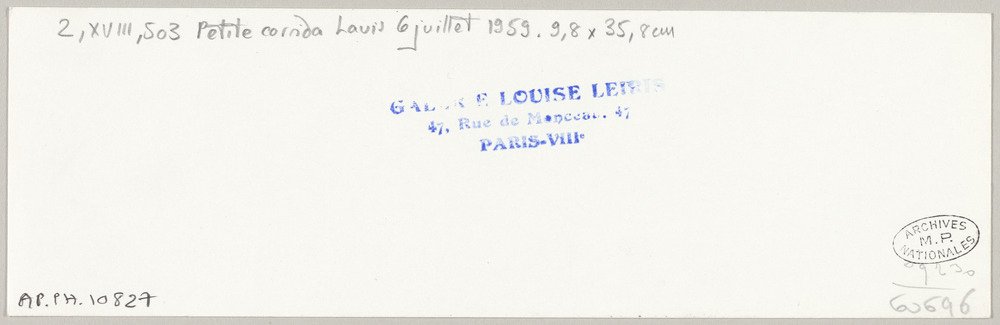 2, XVIII, 503 Petite corrida Lavis 6 juillet 1959. 9,8 x 35,8 cm
GALERIE LOUISE LEIRIS
47, Rue de Monceau. 47
PARIS-VIIIe
ARCHIVES
M. P.
NATIONALES
60696
AP.PH.10827